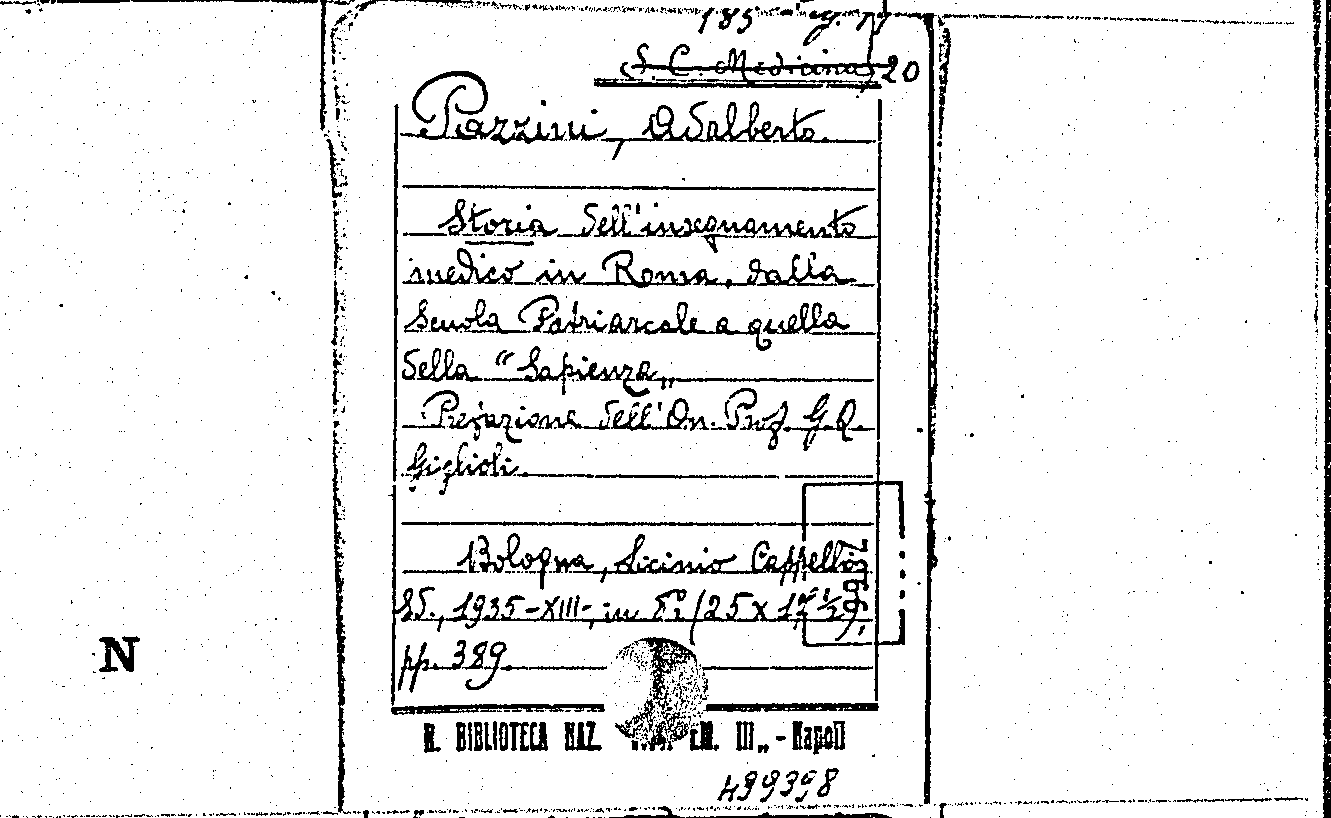 185
(S. C. Medicina) 20
Pazzini, Adalberto.
Storia dell'insegnamento
medico in Roma, dalla
Scuola Patriarcale a quella
della "Sapienza„
Prefazione dell'On. Prof. G. Q.
Giglioli.
Bologna, Licinio Cappelli
Ed., 1935-XIII-, in 8º (25 x 17 ½),
pp. 389.
N
R. BIBLIOTECA NAZ. EM. III„ - Napoli
499398